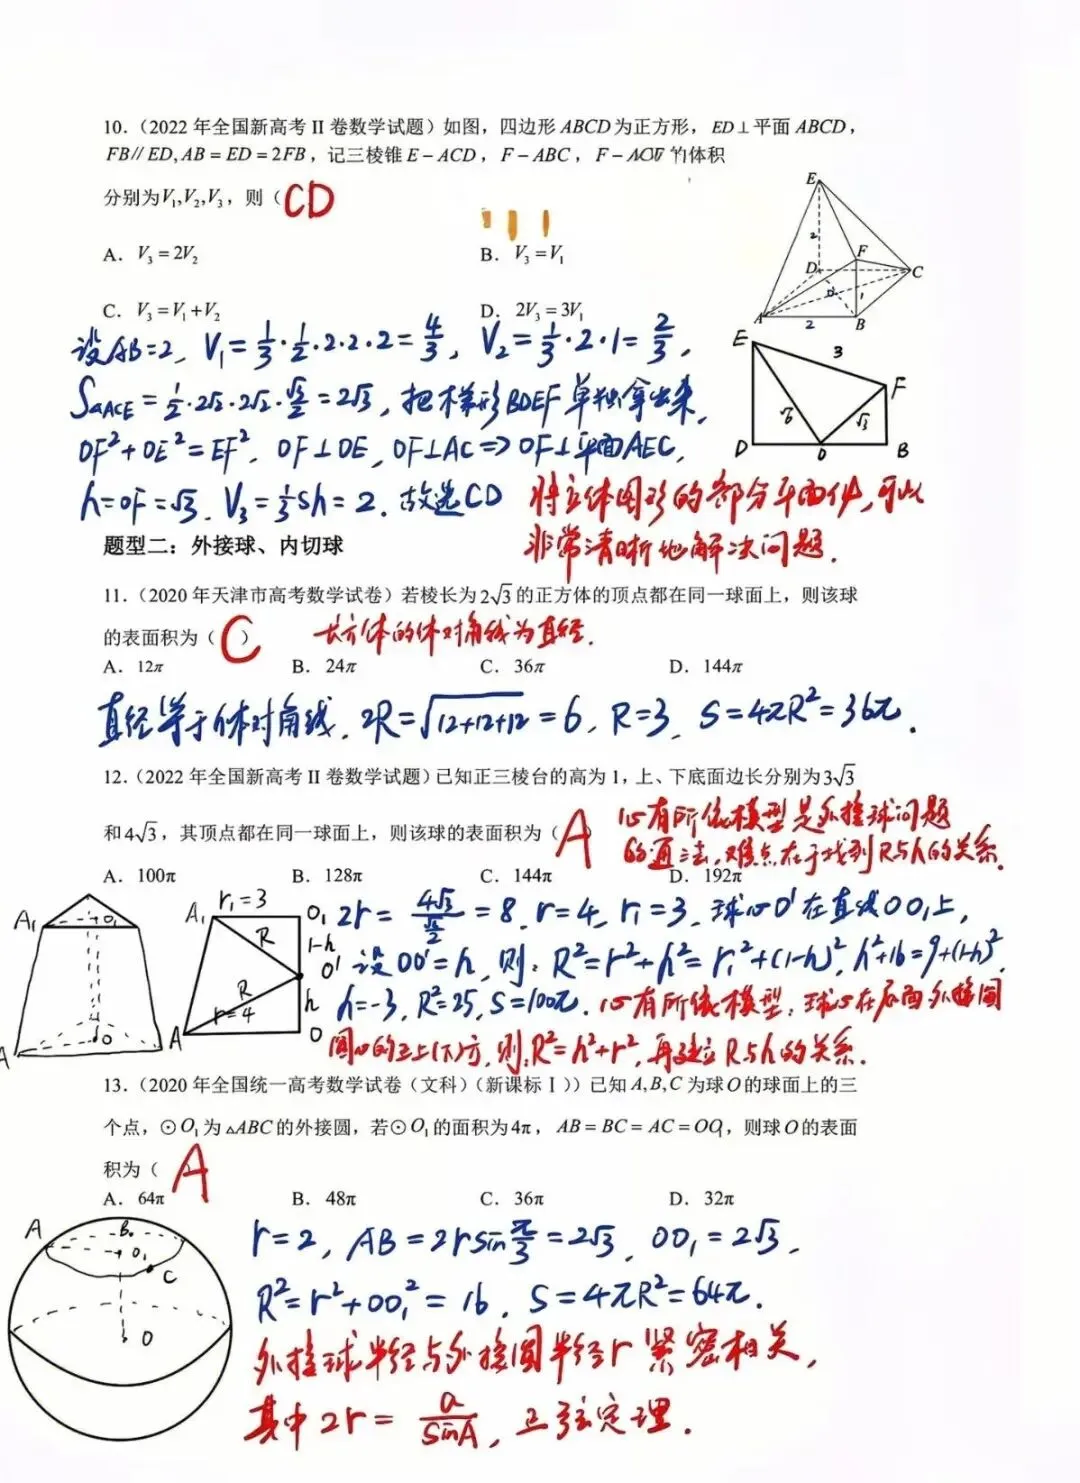 10.（2022 年全国新高考 II 卷数学试题）如图，四边形 ABCD 为正方形，ED⊥平面 ABCD，
FB∥ED, AB = ED = 2FB，记三棱锥 E－ACD，F－ABC，F－ACE 的体积
分别为V₁,V₂,V₃，则（ CD
A．V₃ = 2V₂
B．V₃ = V₁
C．V₃ = V₁ + V₂
D．2V₃ = 3V₁
E
2
D
F
C
O
1
A
2
B
设AB=2, V₁=1/3·1/2·2·2·2=4/3, V₂=1/3·2·1=2/3,
S△ACE=1/2·2√2·2√2·√3/2=2√3, 把梯形BDEF单独拿出来,
OF²+OE²=EF². OF⊥OE, OF⊥AC⇒OF⊥平面AEC,
h=OF=√3. V₃=1/3Sh=2. 故选CD
E
3
F
√6
√3
D
O
B
将立体图形的部分平面化,可以
非常清晰地解决问题.
题型二：外接球、内切球
11.（2020 年天津市高考数学试卷）若棱长为 2√3 的正方体的顶点都在同一球面上，则该球
的表面积为（ C ）
长方体的体对角线为直径.
A．12π
B．24π
C．36π
D．144π
直径等于体对角线, 2R=√12+12+12=6, R=3, S=4πR²=36π.
12.（2022 年全国新高考 II 卷数学试题）已知正三棱台的高为 1，上、下底面边长分别为 3√3
和 4√3，其顶点都在同一球面上，则该球的表面积为（ A
心有所依模型是外接球问题
的通法,难点在于找到R与h的关系.
A．100π
B．128π
C．144π
D．192π
A₁
O₁
A
O
A₁
r₁=3
O₁
R
1-h
O'
R
h
r=4
A
O
2r=4√3/(√3/2)=8. r=4, r₁=3. 球心O'在直线OO₁上,
设OO'=h, 则: R²=r²+h²=r₁²+(1-h)². h²+16=9+(1-h)².
h=-3, R²=25, S=100π. 心有所依模型: 球心在底面外接圆
圆心的正上(下)方, 则:R²=h²+r², 再建立R与h的关系.
13.（2020 年全国统一高考数学试卷（文科）（新课标Ⅰ））已知 A,B,C 为球 O 的球面上的三
个点，⊙O₁ 为△ABC 的外接圆，若⊙O₁ 的面积为 4π，AB = BC = AC = OO₁，则球 O 的表面
积为（ A
A．64π
B．48π
C．36π
D．32π
A
B
O₁
C
O
r=2, AB=2rsinπ/3=2√3, OO₁=2√3,
R²=r²+OO₁²=16. S=4πR²=64π.
外接球半径与外接圆半径r紧密相关,
其中2r=a/sinA, 正弦定理.